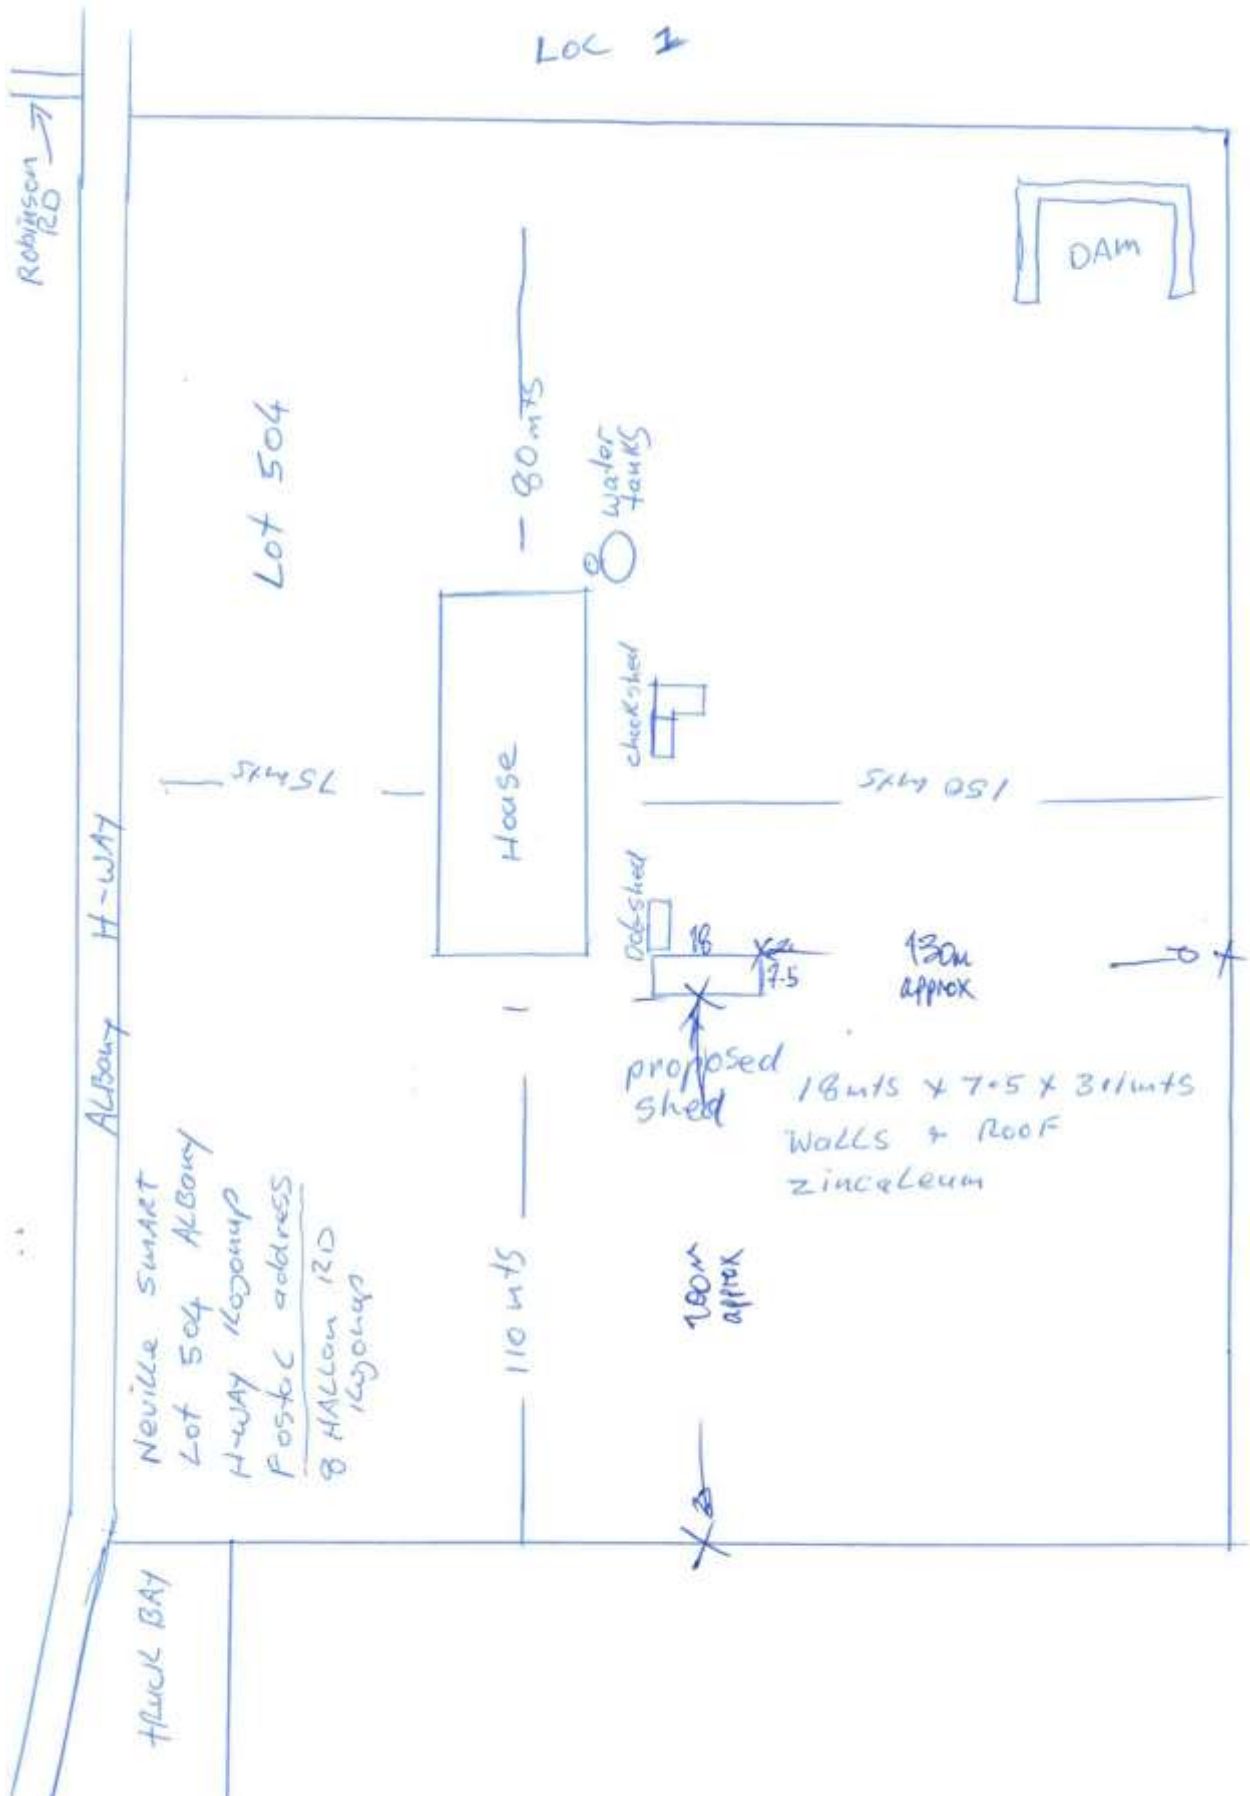 LOC 1
Robinson
RD
DAM
Lot 504
80 mts
Water
tanks
chookshed
75mts
House
150 mts
ALBany H-WAY
Dogshed
18
7.5
130m
approx
proposed
shed
18mts x 7.5 x 3.1mts
Walls + ROOF
zincaleum
Neville SMART
Lot 504 ALBany
H-WAY Kojonup
Postal address
8 HALLam RD
Kojonup
110 mts
100M
approx
tRUCK BAY